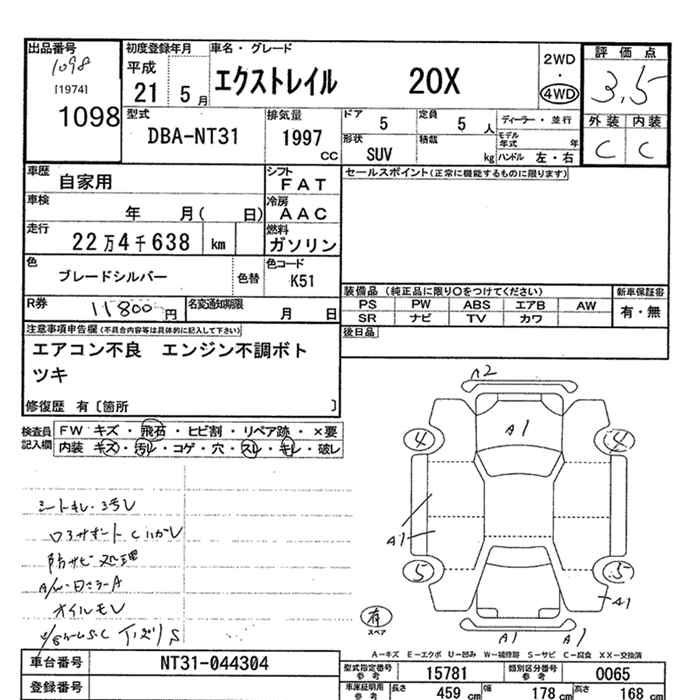 出品番号
1098
[1974]
1098
初度登録年月
平成
21 5 月
車名・グレード
エクストレイル 20X
2WD
・
4WD
評価点
3.5
外装 内装
C C
型式
DBA-NT31
排気量
1997
cc
ドア
5
定員
5 人
ディーラー・並行
形状
SUV
積載
kg
モデル年式
年
ハンドル 左・右
車歴
自家用
シフト
FAT
セールスポイント(正常に機能するものに限ります)
車検
年 月( 日)
冷房
AAC
走行
22万4千638 km
燃料
ガソリン
色
ブレードシルバー
色替
色コード
K51
装備品 (純正品に限り○をつけてください)
新車保証書
PS PW ABS エアB AW
SR ナビ TV カワ
有・無
R券
11800円
名変通知期限
月 日
後日品
注意事項申告欄(不具合内容等は具体的に記入して下さい)
エアコン不良 エンジン不調ボト
ツキ
修復歴 有〔箇所 〕
検査員
記入欄
FW キズ・飛石・ヒビ割・リペア跡・×要
内装 キズ・汚レ・コゲ・穴・スレ・キレ・破レ
シートキレ・
防サビ処理
オイルモレ
A2
A1
4
4
A1
5
5
A1
有
スペア
A1 A1
A-キズ E-エクボ U-凹み W-補修跡 S-サビ C-腐食 XX-交換済
車台番号 NT31-044304
登録番号
型式指定番号
参考
15781
類別区分番号
参考
0065
車庫証明用
参考
長さ
459 cm
幅
178 cm
高さ
168 cm